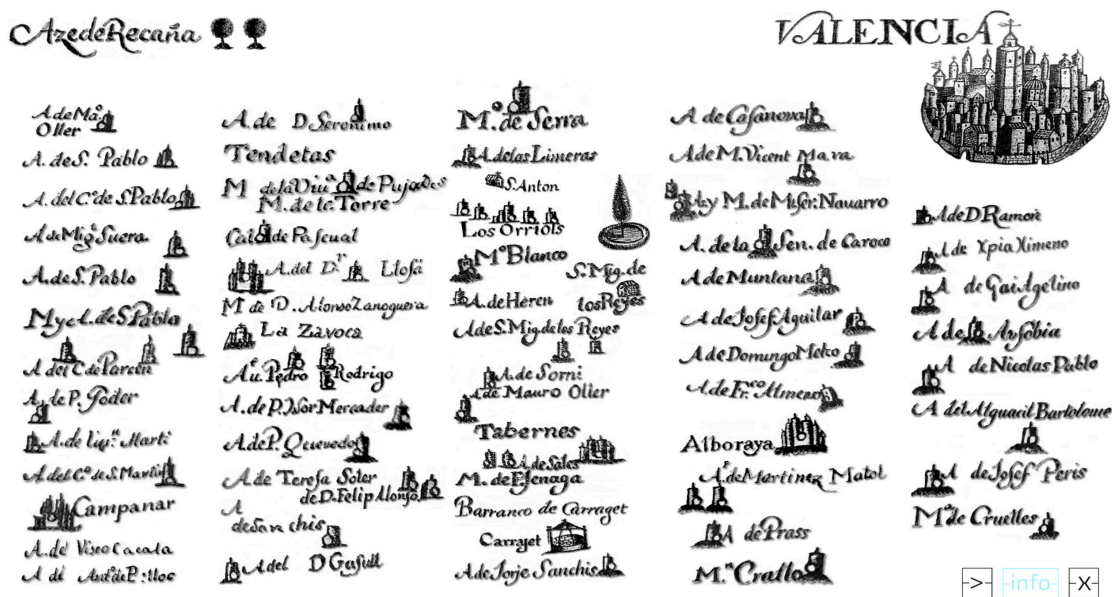 Azede Recaña
VALENCIA
A. de Mã.
Oller
A. de S. Pablo
A. del C.º de S. Pablo
A. de Mig.º Suera.
A. de S. Pablo
M y A. de S. Pablo
A. del C. de Parcen
A. de P. Goder
A. de Martí
A. del C.º de S. Martin
Campanar
A. del
A. de
A. de D Geronimo
Tendetas
M de la Viu.ª de Pujades
M. de la Torre
Cal de Pascual
A. del D.r Llosá
M. de D. Alonso Zanoguera
La Zavoca
Pedro Rodrigo
A. de P. Mercader
A. de P. Quevedo
A. de Teresa Soler
de D. Felip Alonso
A
de Sanchis
A. del D Gasull
M.º de Serra
A. de las Limeras
S. Anton
Los Orriols
M.º Blanco
S. Mig. de
los Reyes
A. de Heren
A. de S. Mig. de los Reyes
A. de Sorni
A. de Mauro Oller
Tabernes
A. de Sales
M. de Esenaga
Barranco de Carraget
Carrayet
A. de Jorje Sanchis
A de Casanova
A de M. Vicent Mara
A y M. de Miser. Navarro
A. de la Sen. de Caroco
A de Muntana
A de Josef Aguilar
A de Domingo Meko
A. de Fr.co Almeno
Alboraya
A. de Martinez Matol
A de Prass
Crallo
A de D Ramon
A. de Ypia Ximeno
A de Gai Agelino
A de Ansobia
A de Nicolas Pablo
A del Alguacil Bartolome
A de Josef Peris
M.ª de Cruelles
> info X